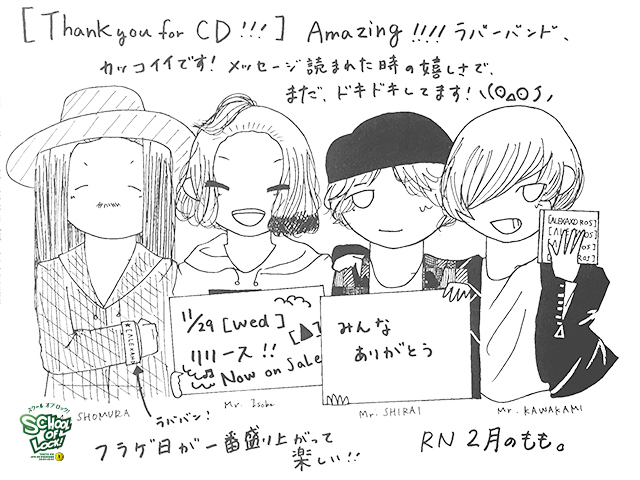 [Thank you for CD!!!] Amazing!!!! ラバーバンド、
カッコイイです! メッセージ読まれた時の嬉しさで、
まだ、ドキドキしてます!
[ALEXANDROS]
11/29 [Wed]
リリース!!
Now on Sale
みんな
ありがとう
[ALEXAND
SHOMURA
Mr. Isobe
Mr. SHIRAI
Mr. KAWAKAMI
ラババン!
フラゲ日が一番盛り上がって
楽しい!!
RN 2月のもも。
スクールオブロック!
SCHOOL OF LOCK!